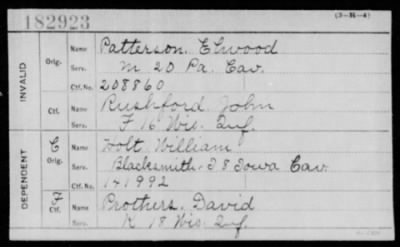 182923
(3-M-4)
INVALID
Orig.
Name Patterson, Elwood
Serv. M 20 Pa. Cav.
Ctf. No. 208860
Ctf.
Name Rushford, John
Serv. F 16 Wis. Inf.
DEPENDENT
C
Orig.
Name Holt, William
Serv. Blacksmith, I 8 Iowa Cav.
Ctf. No. 171992
F
Ctf.
Name Brothers, David
Serv. K 18 Wis. Inf.